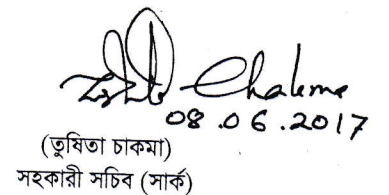 Chakma
08.06.2017
(তুষিতা চাকমা)
সহকারী সচিব (সার্ক)